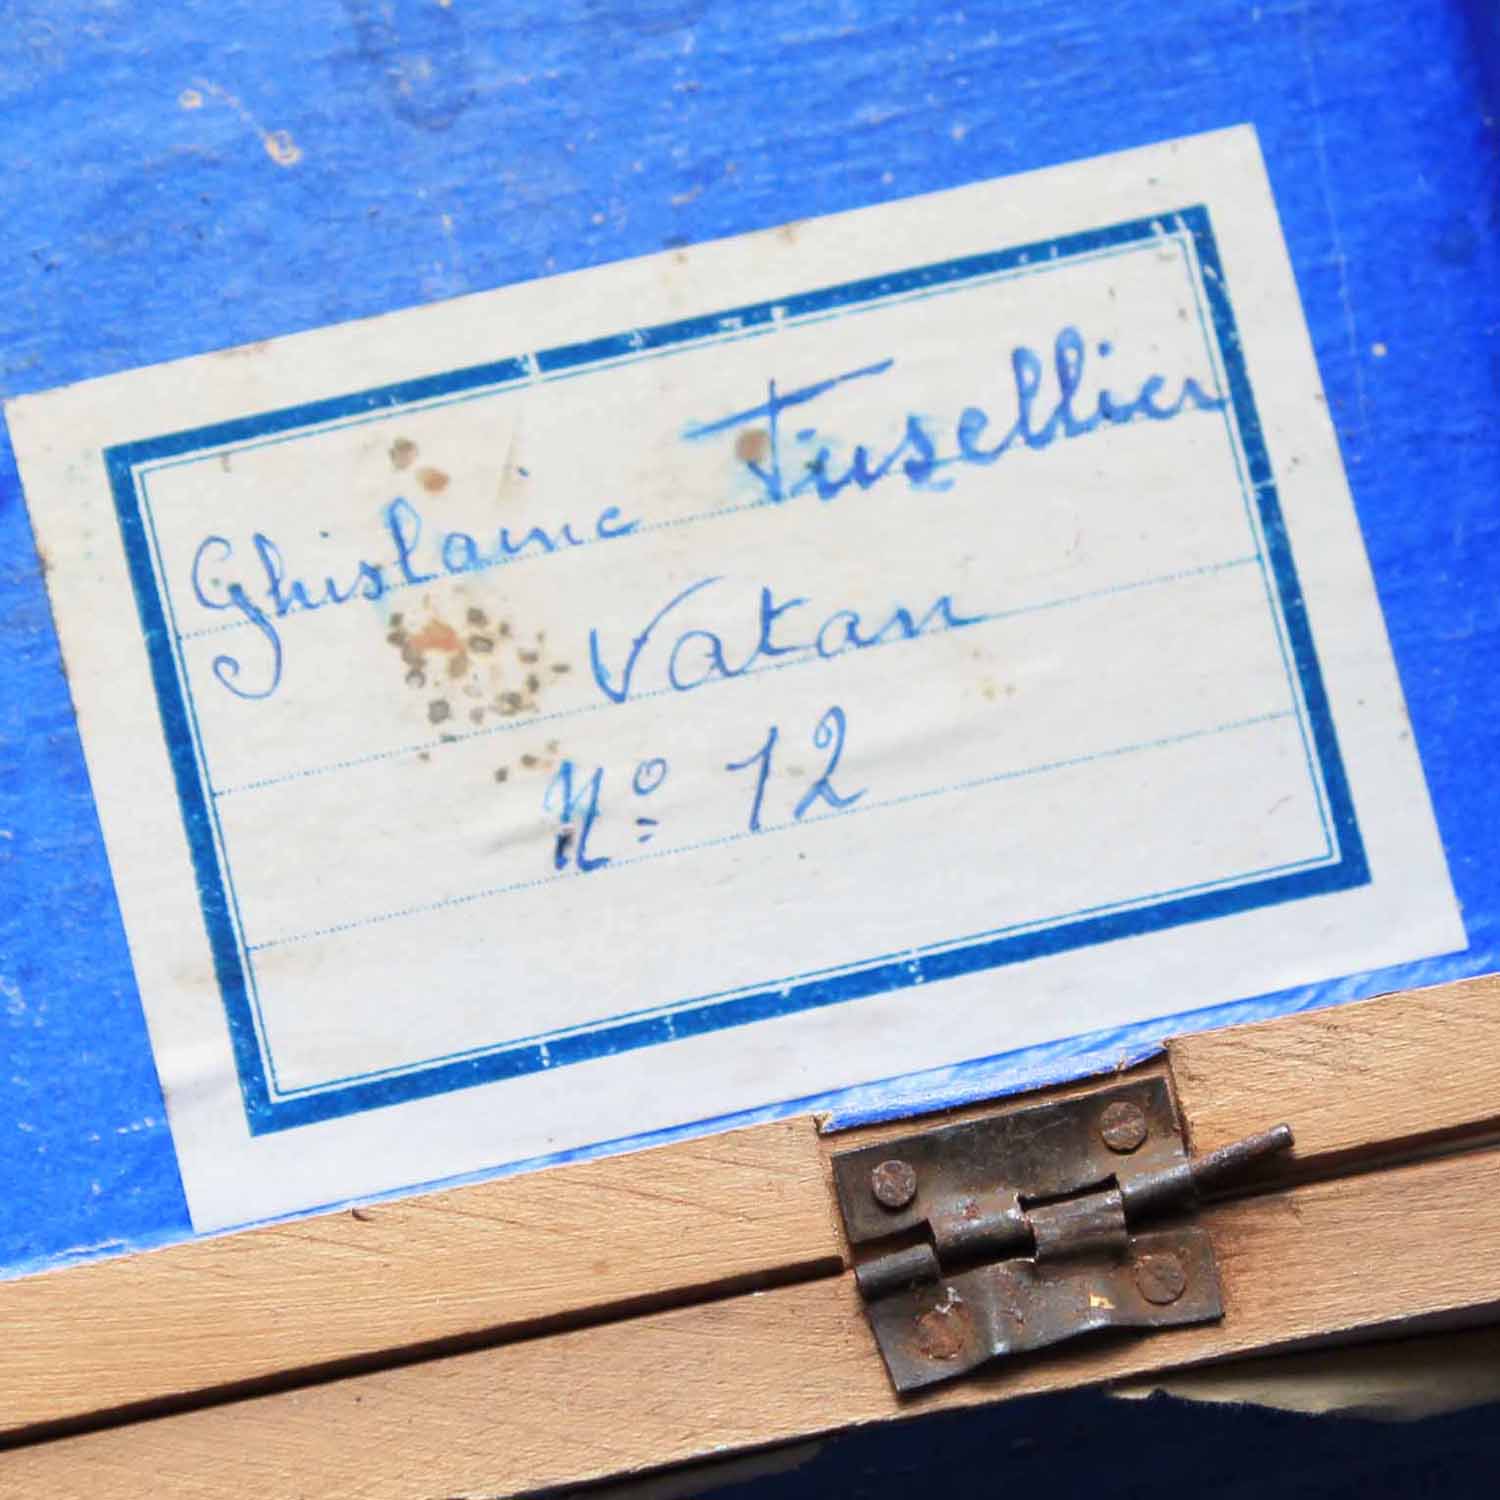 Ghislaine Fusellier
Vatan
No 12